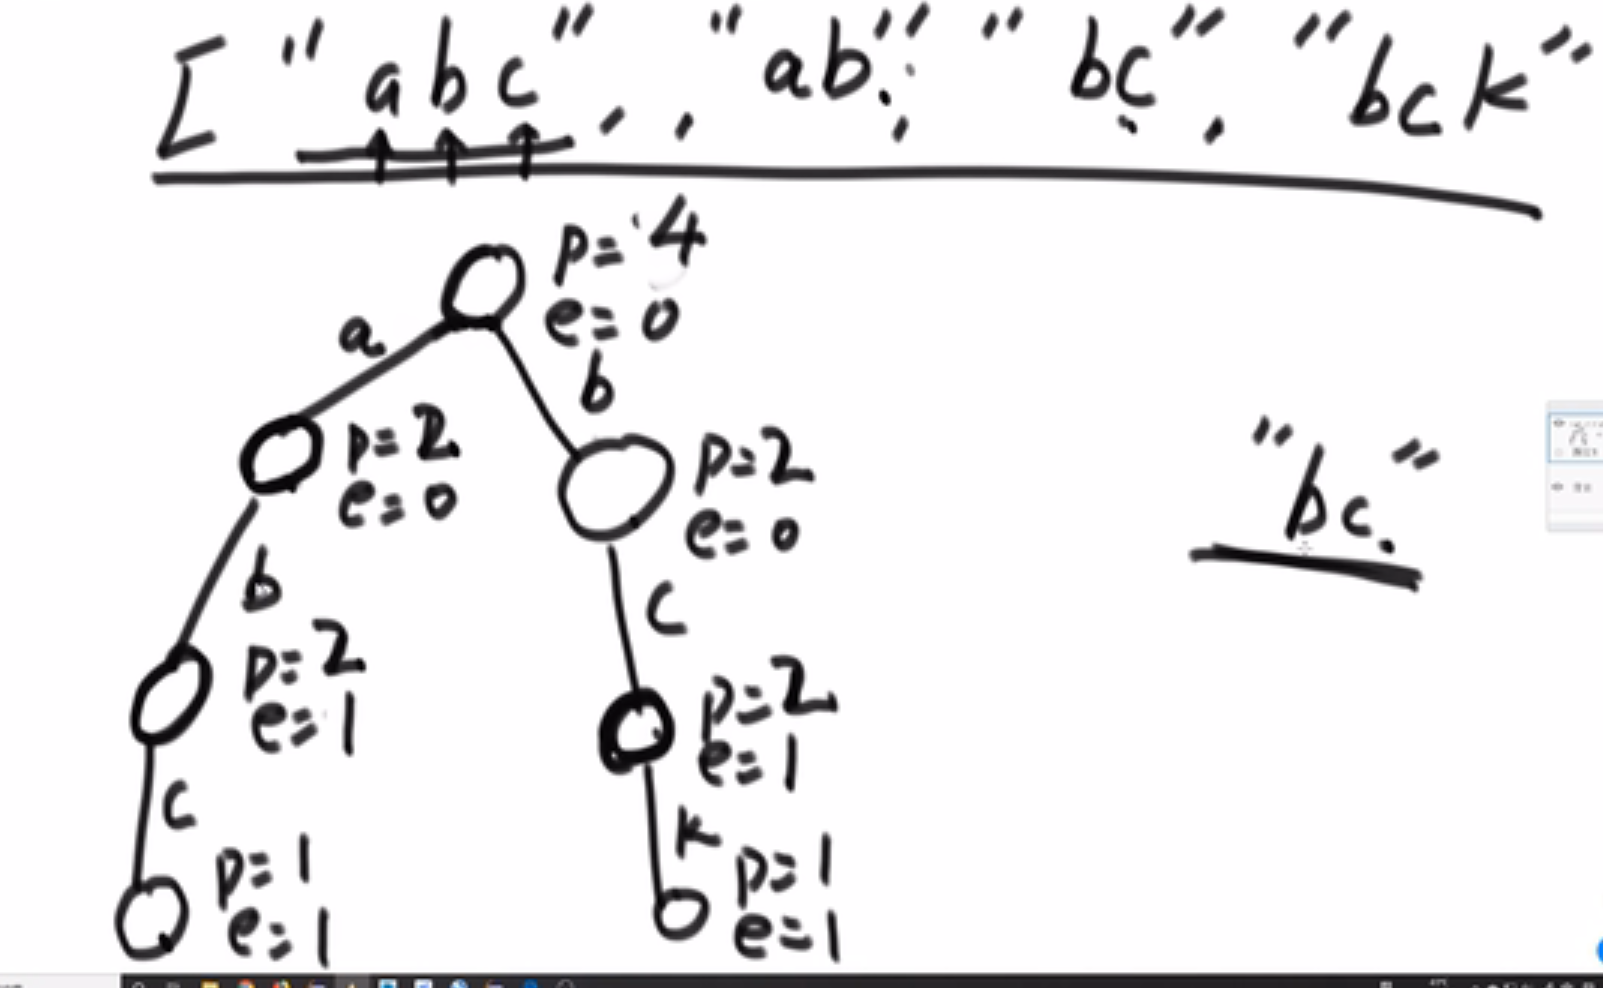 ["abc", , "ab", "bc", "bck"
p=4
e=0
a
b
p=2
e=0
p=2
e=0
"bc."
b
c
p=2
e=1
p=2
e=1
c
k
p=1
e=1
p=1
e=1